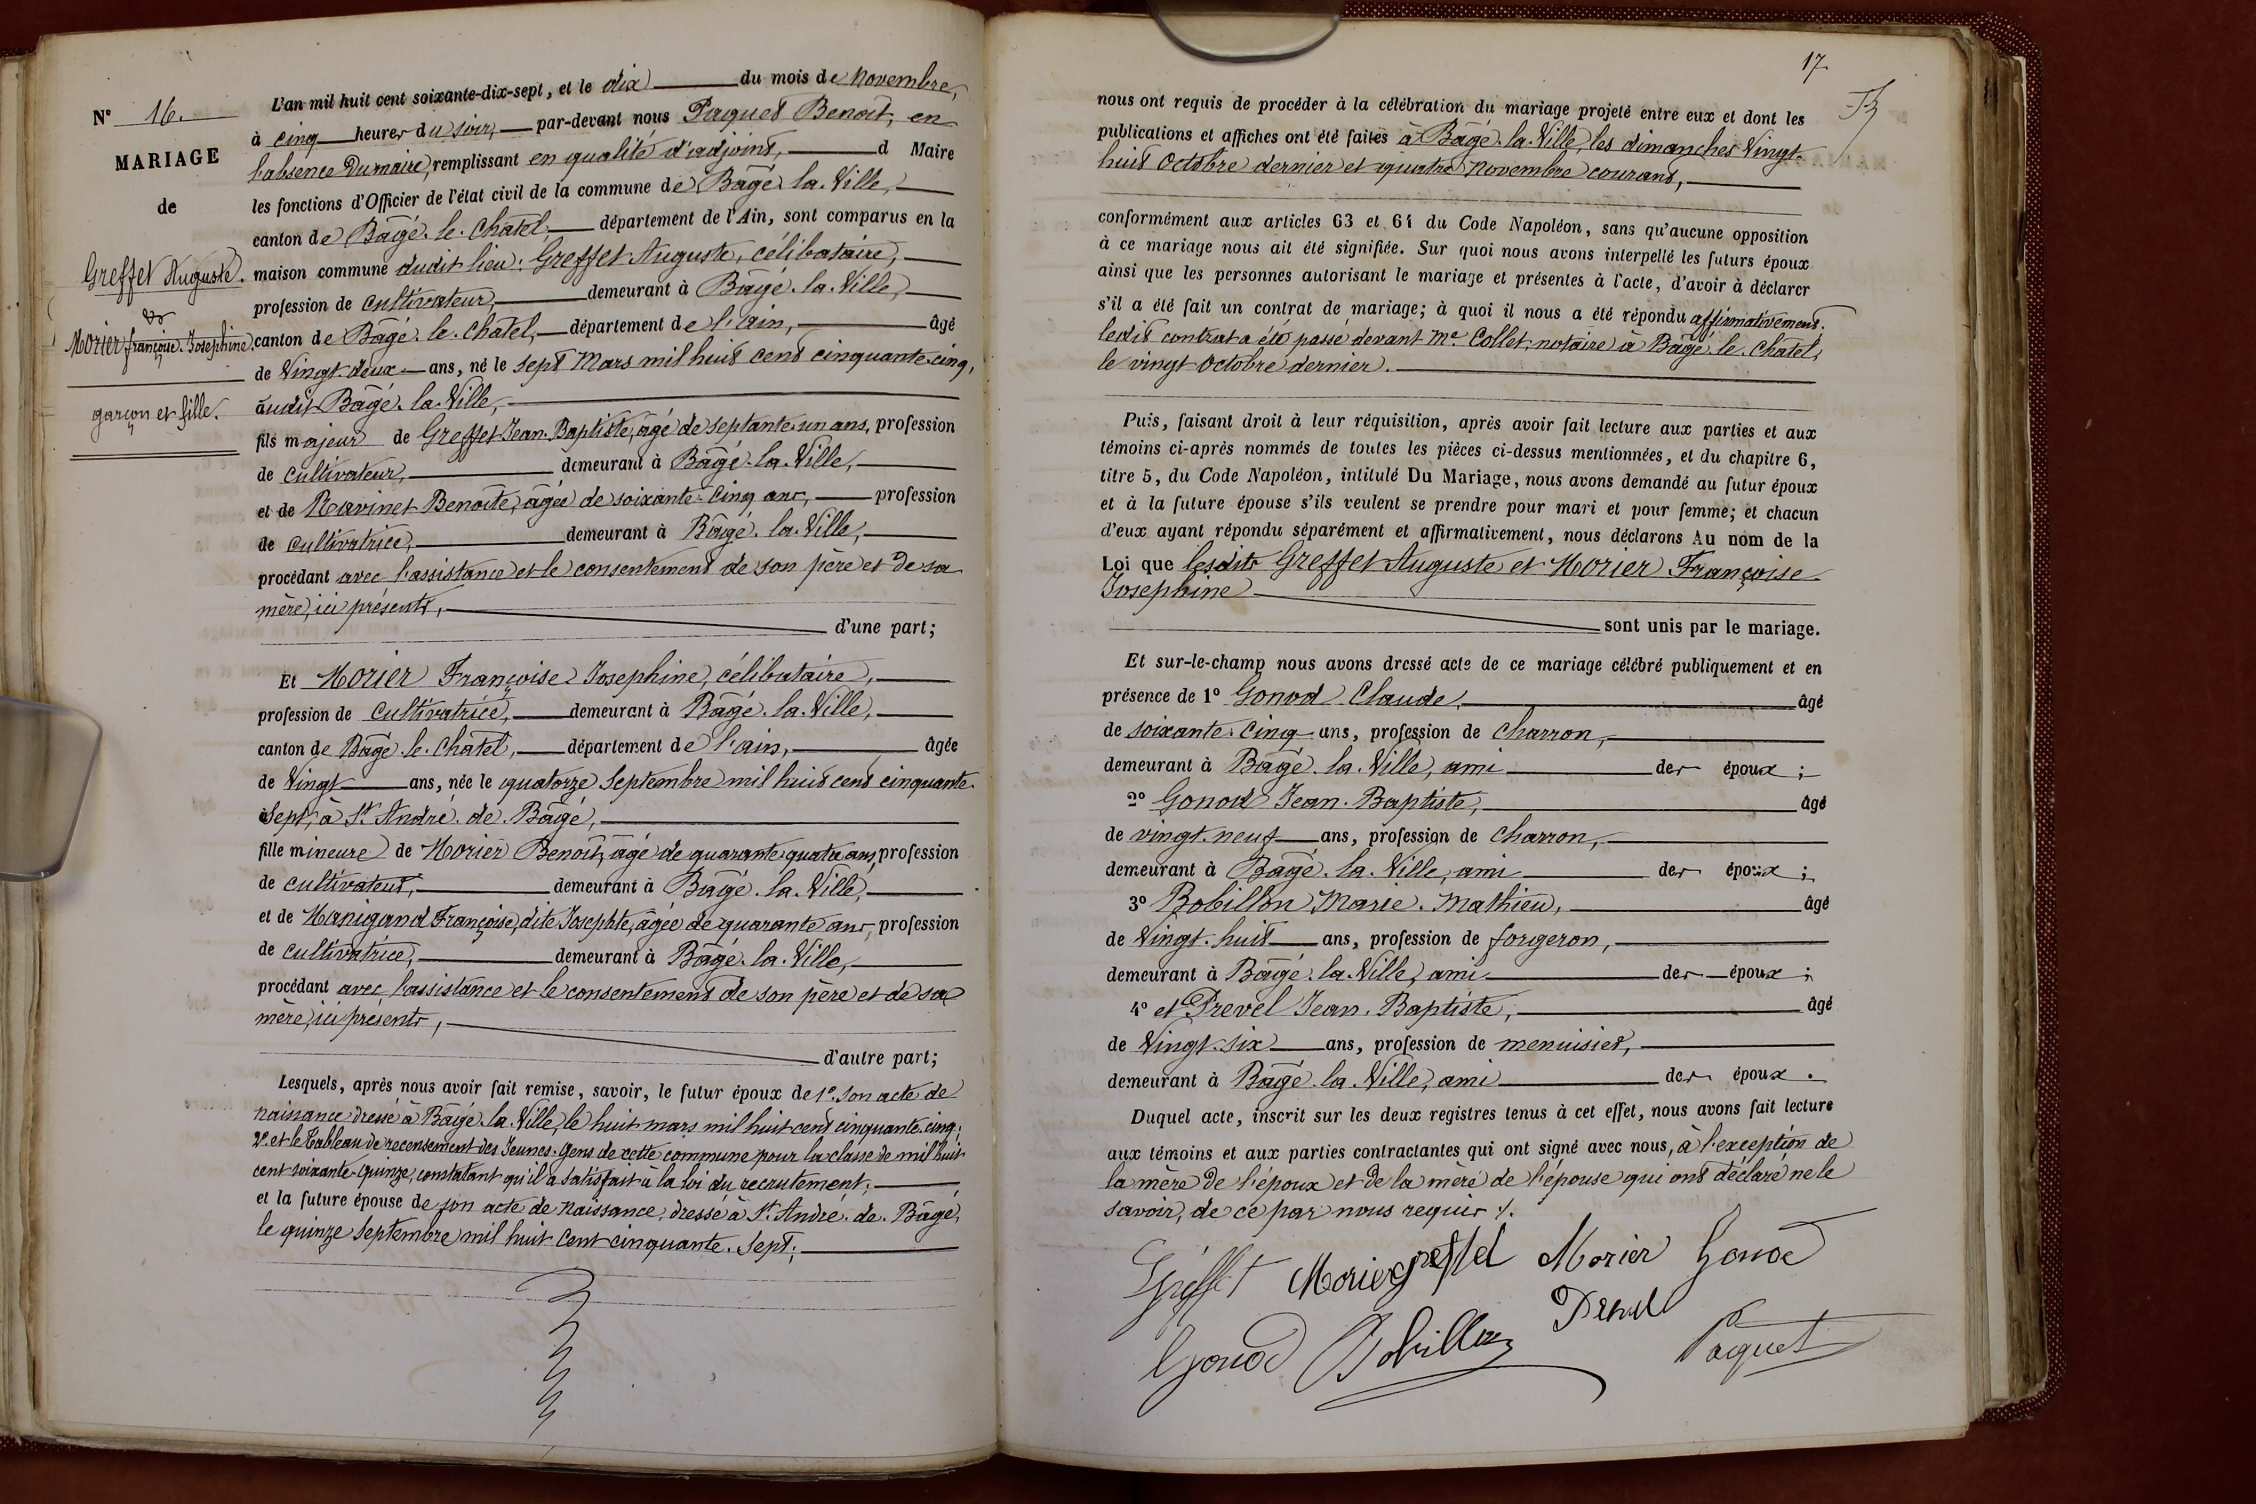 N° 16.
MARIAGE
de
Greffet Auguste.
&
Morier françoise. Josephine.
garçon et fille.
L'an mil huit cent soixante-dix-sept, et le dix du mois de Novembre,
à cinq heures du soir, par-devant nous Paquet Benoit, en
l'absence Du maire, remplissant en qualité d'adjoint, d Maire
les fonctions d'Officier de l'état civil de la commune de Bâgé. la. Ville,
canton de Bâgé. le. Chatel, département de l'Ain, sont comparus en la
maison commune dudit lieu: Greffet Auguste, célibataire,
profession de cultivateur, demeurant à Bâgé. la. Ville,
canton de Bâgé. le. Chatel, département de l'ain, âgé
de Vingt. deux ans, né le sept Mars mil huit cent cinquante. cinq,
audit Bâgé. la. Ville,
fils majeur de Greffet Jean. Baptiste, âgé de septante. un ans, profession
de cultivateur, demeurant à Bâgé. la. Ville,
et de Navinet Benoite, âgée de soixante. Cinq ans, profession
de cultivatrice, demeurant à Bâgé. la. Ville,
procédant avec l'assistance et le consentement de son père et de sa
mère, ici présents,
d'une part;
Et Morier Françoise Josephine, célibataire,
profession de cultivatrice, demeurant à Bâgé. la. Ville,
canton de Bâgé. le. Chatel, département de l'ain, âgée
de Vingt ans, née le quatorze Septembre mil huit cent cinquante.
Sept, à St André. de. Bâgé,
fille mineure de Morier Benoit, âgé de quarante. quatre ans, profession
de cultivateur, demeurant à Bâgé. la. Ville,
et de Manigand Françoise, dite Josephte, âgée de quarante ans, profession
de cultivatrice, demeurant à Bâgé. la. Ville,
procédant avec l'assistance et le consentement de son père et de sa
mère, ici presents,
d'autre part;
Lesquels, après nous avoir fait remise, savoir, le futur époux de 1°. son acte de
naissance dressé à Bâgé. la. Ville, le huit mars mil huit cent cinquante. cinq;
2°. et le Tableau de recensement des Jeunes. Gens de cette commune pour la classe de mil huit
cent soixante. Quinze, constatant qu'il a satisfait à la loi du recrutement;
et la future épouse de son acte de Naissance, dressé à St André. de. Bâgé,
le quinze septembre mil huit Cent cinquante. Sept;
17
nous ont requis de procéder à la célébration du mariage projeté entre eux et dont les
publications et affiches ont été faites à Bâgé. la. Ville, les dimanches Vingt.
huit Octobre dernier et quatre Novembre courant,
conformément aux articles 63 et 64 du Code Napoléon, sans qu'aucune opposition
à ce mariage nous ait été signifiée. Sur quoi nous avons interpellé les futurs époux
ainsi que les personnes autorisant le mariage et présentes à l'acte, d'avoir à déclarer
s'il a été fait un contrat de mariage; à quoi il nous a été répondu affirmativement.
ledit contrat a été passé devant Me. Collet, notaire à Bâgé. le. Chatel,
le vingt Octobre dernier.
Puis, faisant droit à leur réquisition, après avoir fait lecture aux parties et aux
témoins ci-après nommés de toutes les pièces ci-dessus mentionnées, et du chapitre 6,
titre 5, du Code Napoléon, intitulé Du Mariage, nous avons demandé au futur époux
et à la future épouse s'ils veulent se prendre pour mari et pour femme; et chacun
d'eux ayant répondu séparément et affirmativement, nous déclarons Au nom de la
Loi que lesdits Greffet Auguste et Morier Françoise
Josephine
sont unis par le mariage.
Et sur-le-champ nous avons dressé acte de ce mariage célébré publiquement et en
présence de 1° Gonod Claude, âgé
de soixante. Cinq ans, profession de Charron,
demeurant à Bâgé. la. Ville, ami des époux;
2° Gonod Jean. Baptiste, âgé
de vingt. neuf ans, profession de Charron,
demeurant à Bâgé. la. Ville, ami des époux;
3° Bobillon Marie. Mathieu, âgé
de Vingt. huit ans, profession de forgeron,
demeurant à Bâgé. la. Ville, ami des époux;
4° et Prevel Jean. Baptiste, âgé
de Vingt. six ans, profession de menuisier,
demeurant à Bâgé. la. Ville, ami des époux.
Duquel acte, inscrit sur les deux registres tenus à cet effet, nous avons fait lecture
aux témoins et aux parties contractantes qui ont signé avec nous, à l'exception de
la mère de l'époux et de la mère de l'épouse qui ont déclaré ne le
savoir, de ce par nous requis ./.
Greffet Morier greffet Morier Gonod
Prevel
Gonod Bobillon Paquet